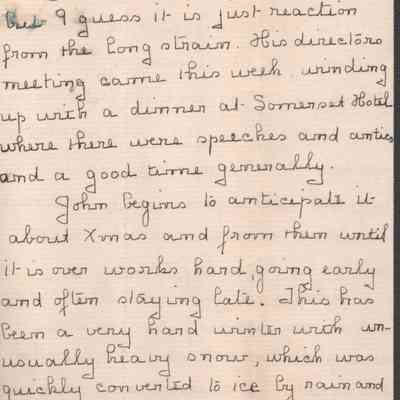 But I guess it is just reaction
from the long strain. His directors
meeting came this week, winding
up with a dinner at Somerset Hotel
where there were speeches and antics
and a good time generally.
John begins to anticipate it
about Xmas and from then until
it is over works hard, going early
and often staying late. This has
been a very hard winter with un-
usually heavy snow, which was
quickly converted to ice by rain and